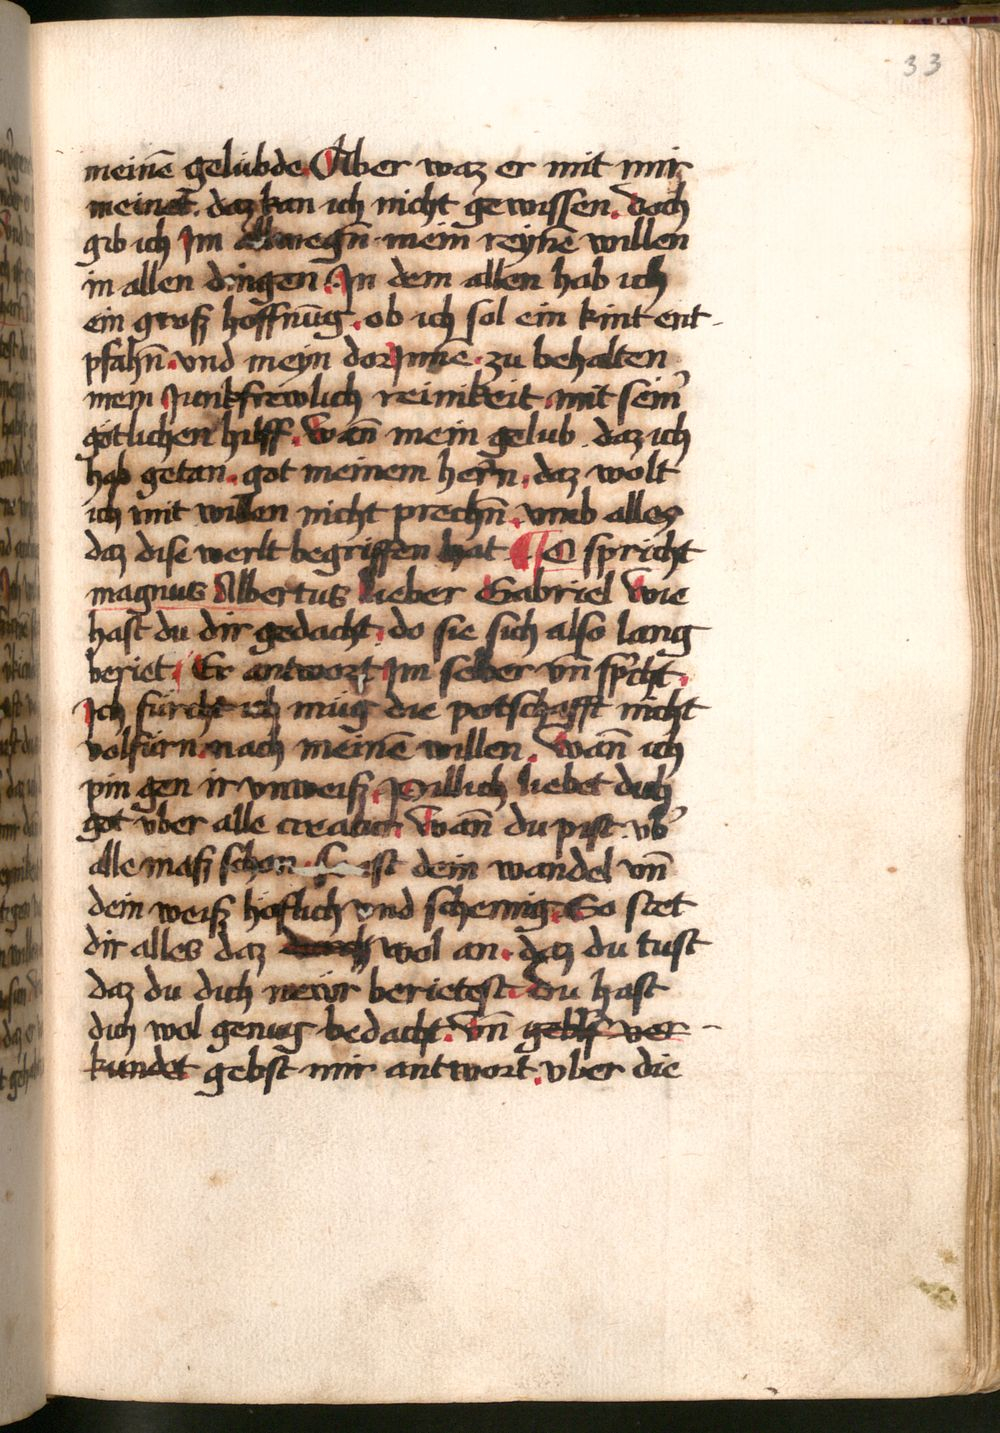 33
meinē gelübde. Aber waz er mit mir
meinet. daz kan ich nicht gewissen. doch
gib ich Im allwegn̄ mein reynē willen
in allen dingen. In dem allen hab ich
ein groß hoffnūg. ob ich sol ein kint ent-
pfahn̄. vnd meyn dorInnē. zu behalten
mein Junkfrewlich reinikeit mit seinʼ
götlichen hilff. Wan̄ mein gelub daz ich
hab getan. got meinem herrn̄. daz wolt
ich mit willen nicht prechn̄. vmb alles
daz dise werlt begriffen hat ¶ O spricht
magnus Albertus lieber Gabriel wie
hast du dir gedacht. do sie sich also lang
beriet. Er antwort Im selber vn̄ spʼcht.
Ich fürcht ich müg die potschafft nicht
volfürn. nach meinē willen. Wan̄ ich
pin gen ir vnweiß. Pillich liebet dich
got vber alle creatur. Wan̄ du pist vbʼ
alle maß schon. ist dein wandel vn̄
dein weiß hoflich vnd schemig. So stet
dir alles daz wol an. daz du tust
daz du dich newr berietest. du hast
dich wol genug bedacht. Vn̄ ver-
kundet gebst mir antwort. vber die